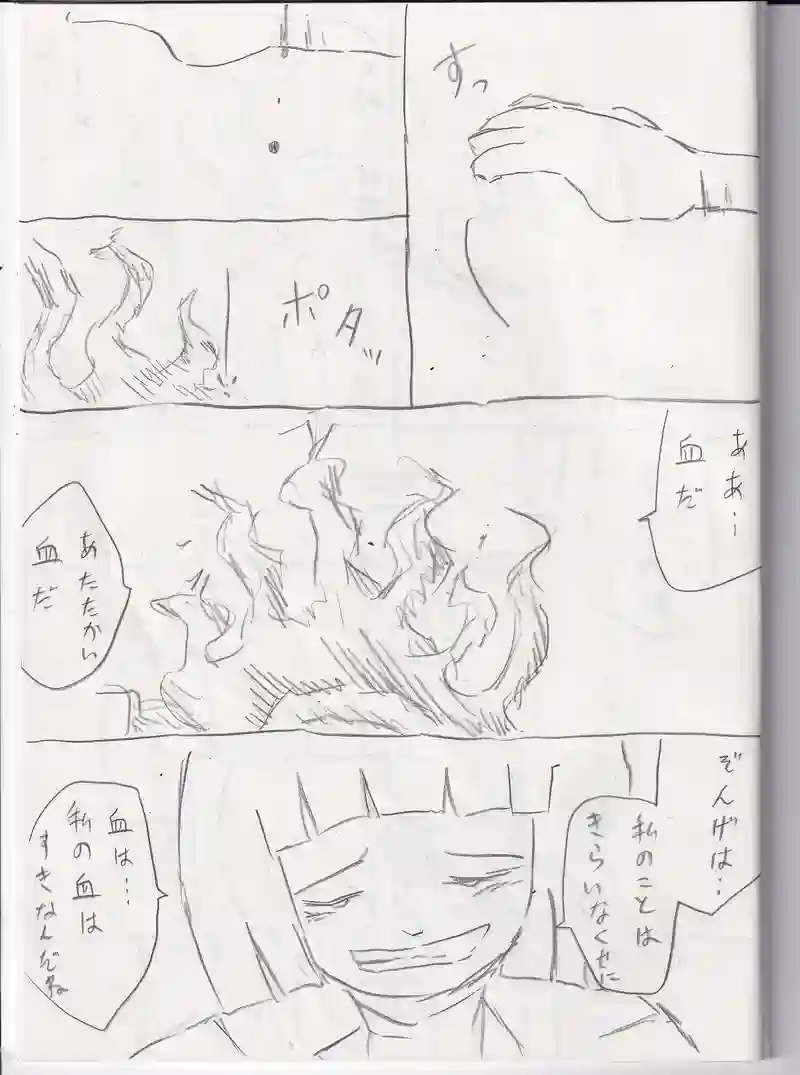 すっ
ポタッ
ああ…
血だ
あたたかい
血だ
ぞんげは…
私のことは
きらいなくせに
血は…
私の血は
すきなんだね